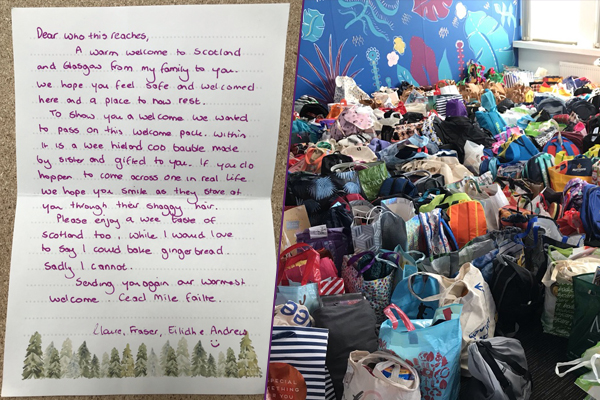 Dear who this reaches,
A warm welcome to Scotland
and Glasgow from my family to you.
We hope you feel safe and welcomed
here and a place to now rest.
To show you a welcome we wanted
to pass on this welcome pack. Within
it is a wee hieland coo bauble made
by sister and gifted to you. If you do
happen to come across one in real life
we hope you smile as they stare at
you through their shaggy hair.
Please enjoy a wee taste of
scotland too. While I would love
to say I could bake gingerbread.
Sadly I cannot.
Sending you again our warmest
welcome. Cead Mile failte.
Claire, Fraser, Eilidh & Andrew
SPECIAL